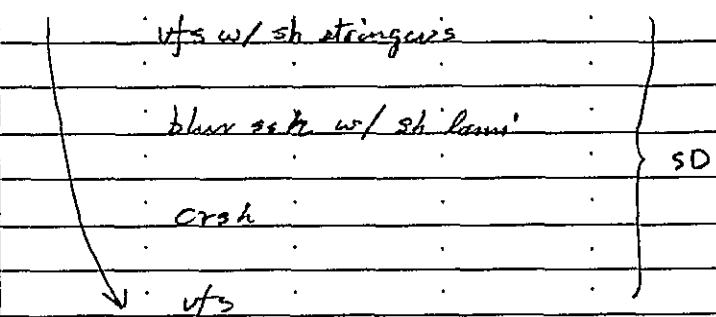 vfs w/ sh stringers
blur ssh w/ sh lami
SD
crsh
vfs